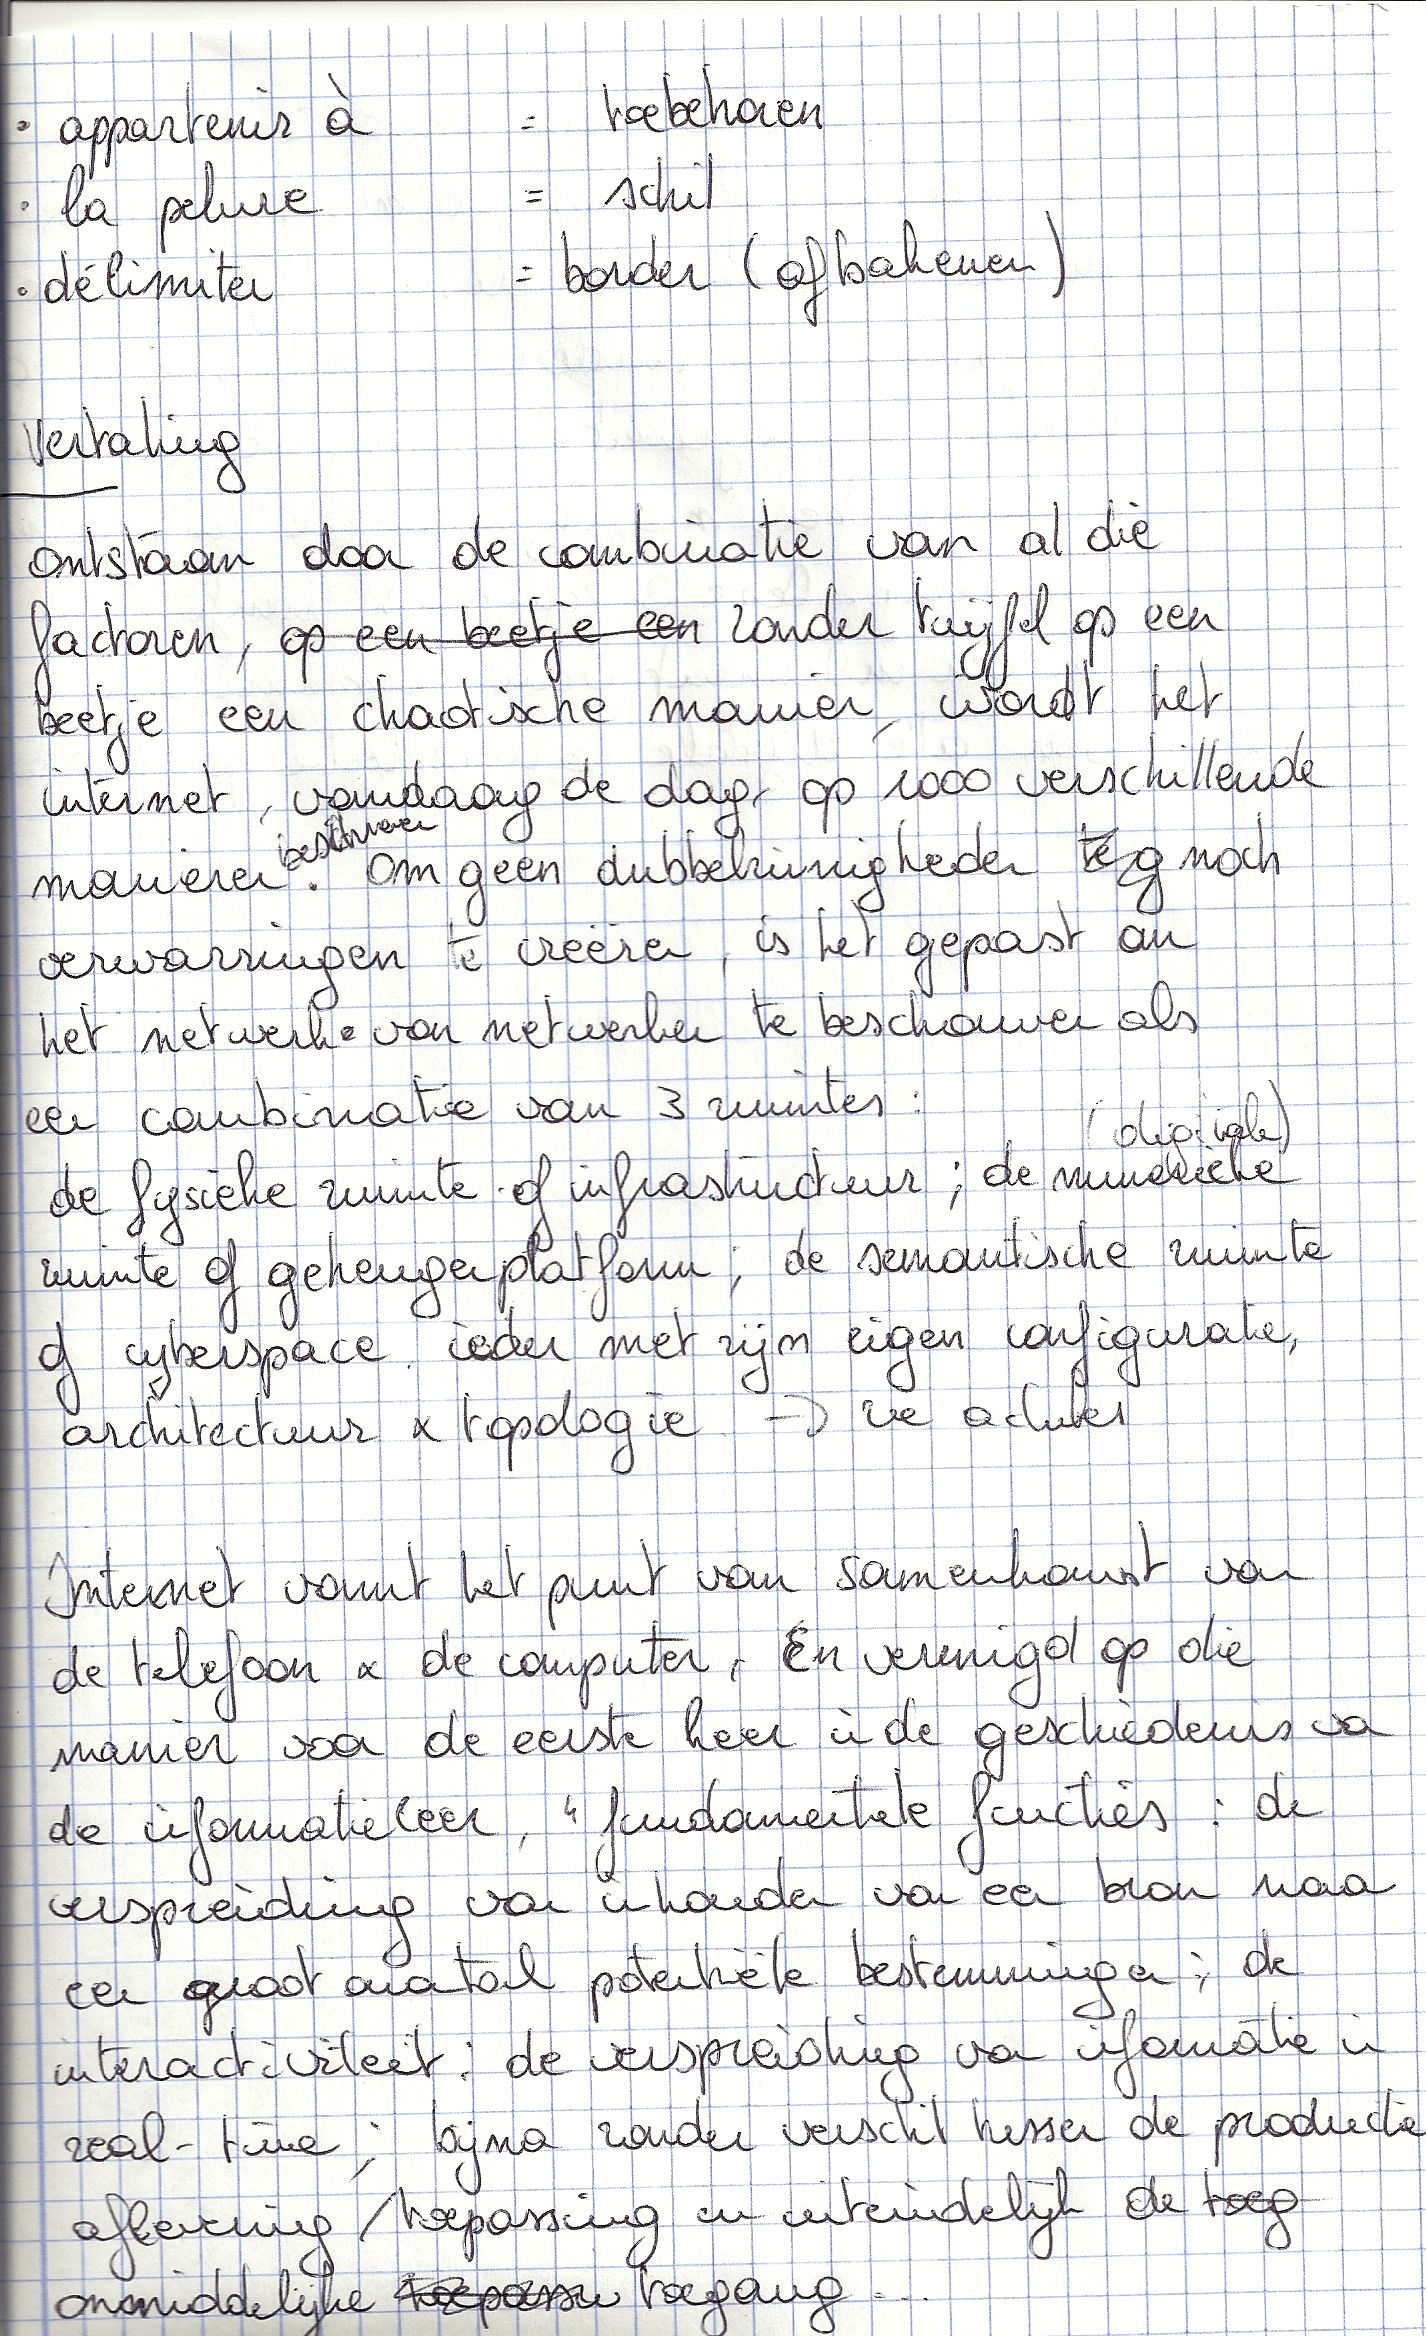 • appartenir à = toebehoren
• la pelure = schil
• délimiter = border (afbakenen)
Vertaling
ontstaan door de combinatie van al die
factoren, op een beetje een zonder twijfel op een
beetje een chaotische manier, wordt het
internet, vandaag de dag, op 1000 verschillende
beschreven
manieren. Om geen dubbelzinnigheden teg noch
verwarringen te creëren, is het gepast om
het netwerk van netwerken te beschouwen als
een combinatie van 3 ruimtes:
(digitale)
de fysieke ruimte of infrastructuur; de numerieke
ruimte of geheugenplatform; de semantische ruimte
of cyberspace. ieder met zijn eigen configuratie,
architectuur & topologie → ze achter
Internet vormt het punt van samenkomst van
de telefoon & de computer, En verenigd op die
manier voor de eerste keer in de geschiedenis van
de informatieleer, 4 fundamentele functies: de
verspreiding van inhouden van een bron naar
een groot aantal potentiële bestemmingen; de
interactiviteit; de verspreiding van informatie in
real-time; bijna zonder verschil tussen de productie
aflevering/toepassing en uiteindelijk de toeg
onmiddelijke toepassin toegang ...